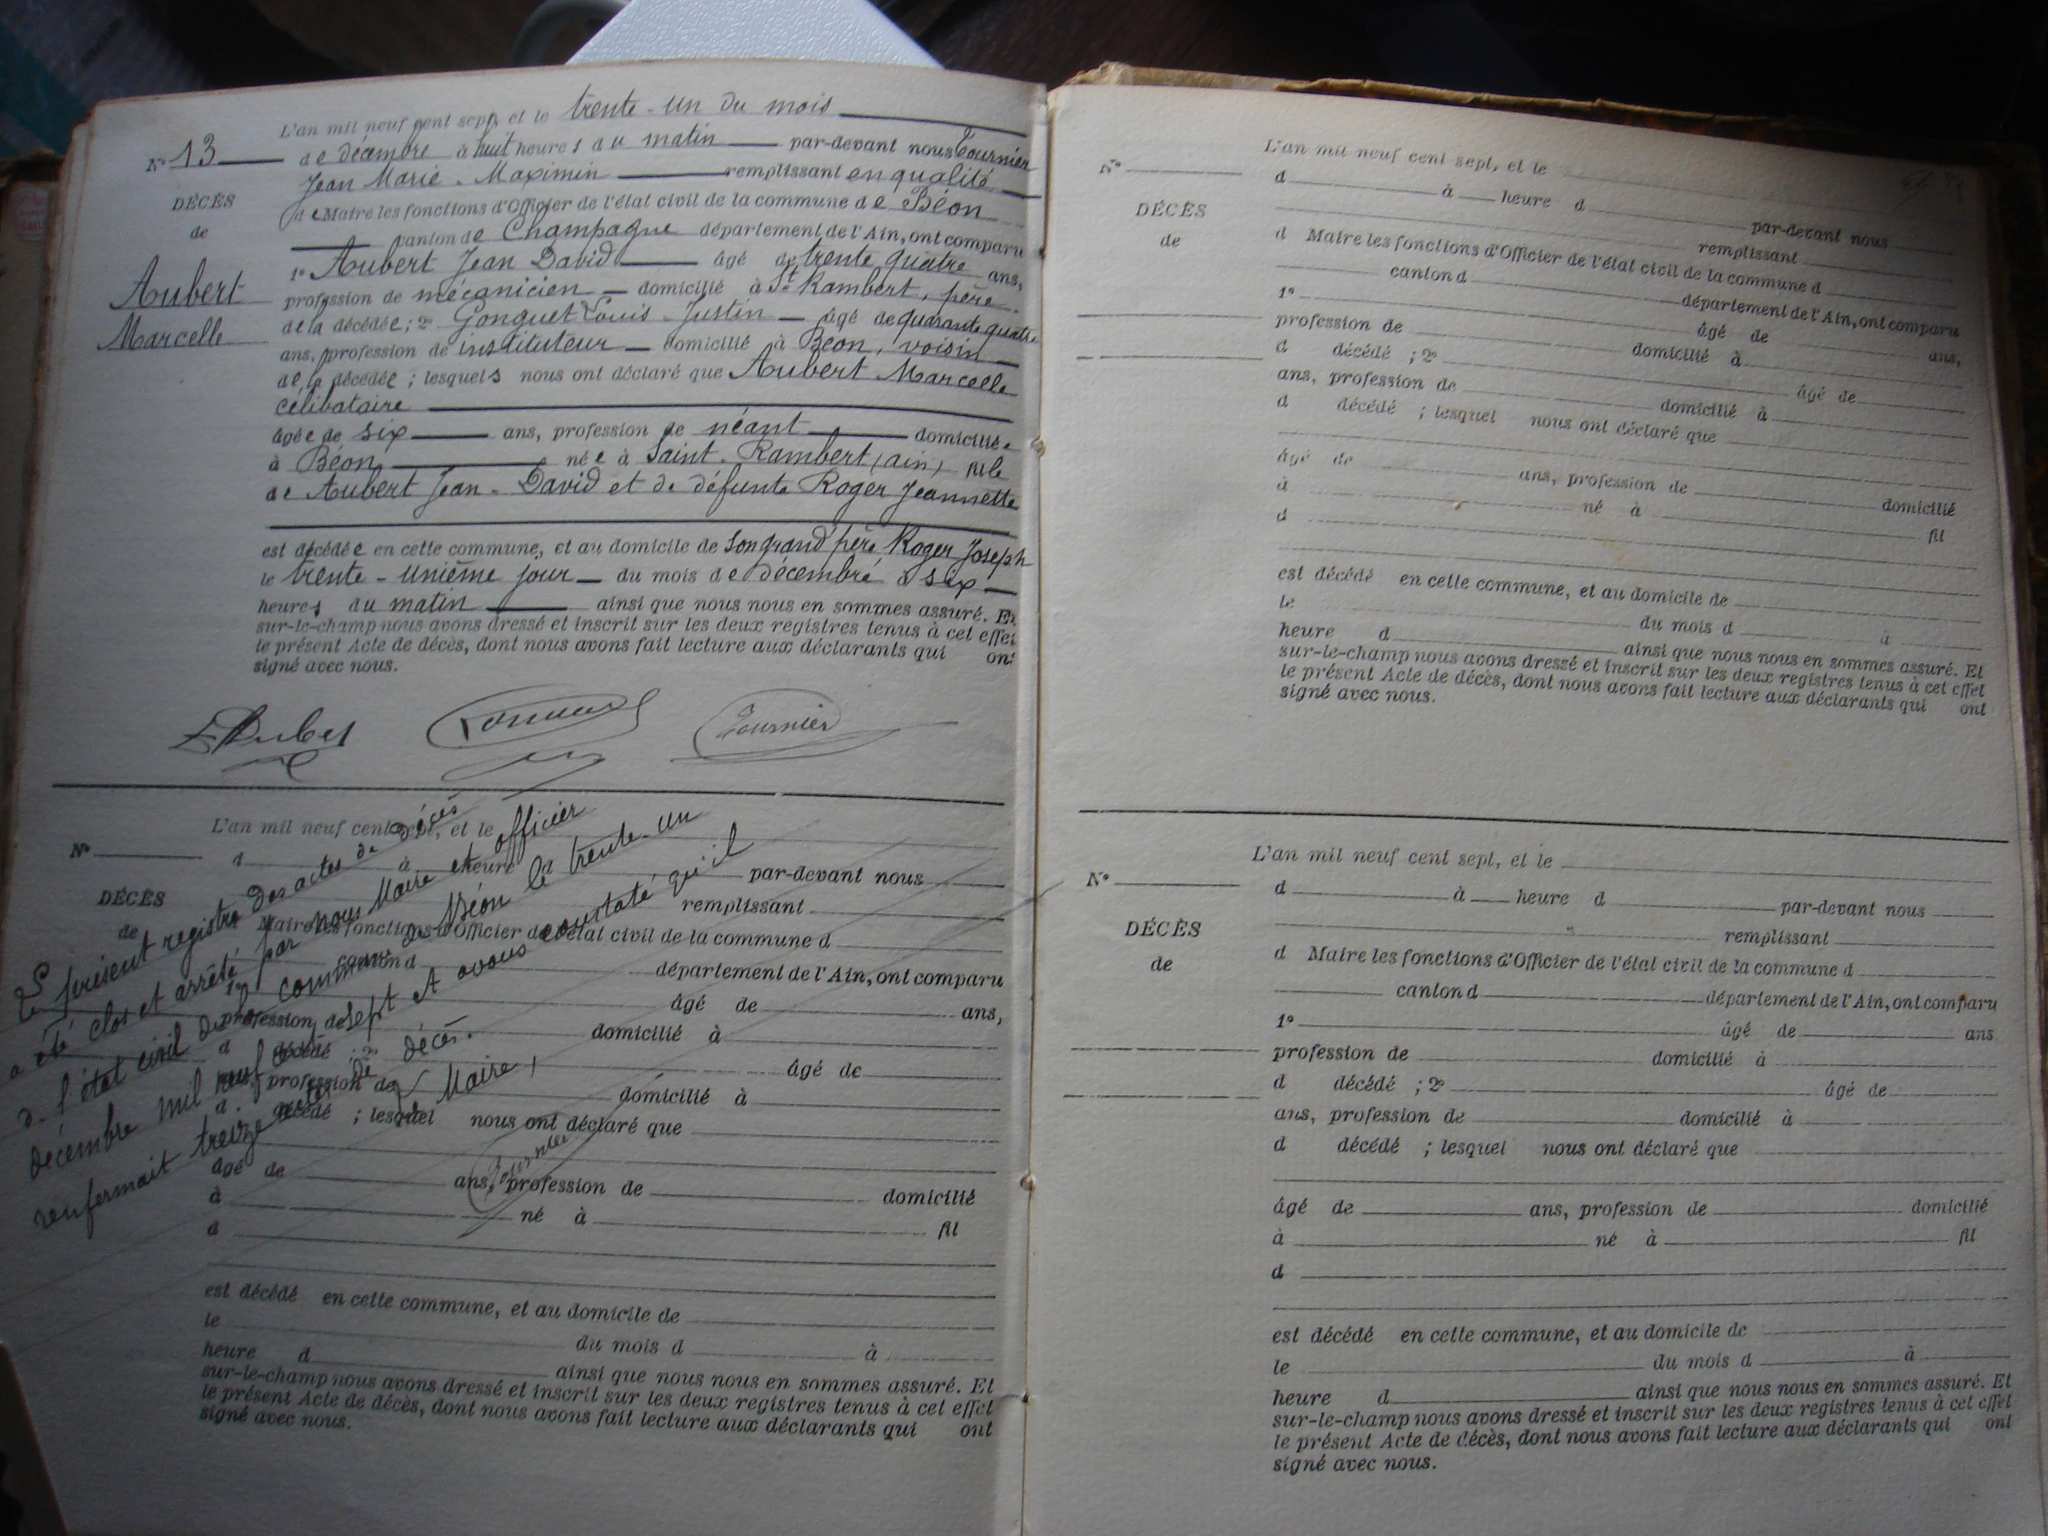 L'an mil neuf cent sept, et le trente-un du mois
N° 13 de décembre à huit heures du matin par-devant nous Tournier
Jean Marie-Maximin remplissant en qualité
DÉCÈS
de Maire les fonctions d'Officier de l'état civil de la commune de Béon
de
canton de Champagne département de l'Ain, ont comparu
1° Aubert Jean David âgé de trente quatre ans,
Aubert
profession de mécanicien domicilié à St Rambert, père
Marcelle
de la décédée; 2° Gonguet Louis-Justin âgé de quarante quatre
ans, profession de instituteur domicilié à Béon, voisin
de la décédée; lesquels nous ont déclaré que Aubert Marcelle
célibataire
âgée de six ans, profession de néant domiciliée
à Béon née à Saint-Rambert (ain) fille
de Aubert Jean-David et de défunte Roger Jeannette
est décédée en cette commune, et au domicile de son grand'père Roger Joseph
le trente-unième jour du mois de décembre à six
heures du matin ainsi que nous nous en sommes assuré. Et
sur-le-champ nous avons dressé et inscrit sur les deux registres tenus à cet effet
le présent Acte de décès, dont nous avons fait lecture aux déclarants qui ont
signé avec nous.
Aubert Tournier
L'an mil neuf cent sept, et le
N° d à heure d par-devant nous
remplissant
DÉCÈS
de
Maire les fonctions d'Officier de l'état civil de la commune d
canton d département de l'Ain, ont comparu
1° âgé de ans,
profession de domicilié à
d décédé ; 2° âgé de
ans, profession de domicilié à
d décédé ; lesquel nous ont déclaré que
âgé de ans, profession de domicilié
à né à fil
d
est décédé en cette commune, et au domicile de
le du mois d à
heure d ainsi que nous nous en sommes assuré. Et
sur-le-champ nous avons dressé et inscrit sur les deux registres tenus à cet effet
le présent Acte de décès, dont nous avons fait lecture aux déclarants qui ont
signé avec nous.
Le présent registre des actes de décès
a été clos et arrêté par nous Maire et officier
de l'état civil de la commune de Béon le trente-un
décembre mil neuf cent sept et avons constaté qu'il
renfermait treize actes de décès.
Le Maire,
Tournier
L'an mil neuf cent sept, et le
N° d à heure d par-devant nous
remplissant
DÉCÈS
de
d Maire les fonctions d'Officier de l'état civil de la commune d
canton d département de l'Ain, ont comparu
1° âgé de ans,
profession de domicilié à
d décédé ; 2° âgé de
ans, profession de domicilié à
d décédé ; lesquel nous ont déclaré que
âgé de ans, profession de domicilié
à né à
d fil
est décédé en cette commune, et au domicile de
le du mois d à
heure d ainsi que nous nous en sommes assuré. Et
sur-le-champ nous avons dressé et inscrit sur les deux registres tenus à cet effet
le présent Acte de décès, dont nous avons fait lecture aux déclarants qui ont
signé avec nous.
L'an mil neuf cent sept, et le
N° d à heure d par-devant nous
remplissant
DÉCÈS
de
d Maire les fonctions d'Officier de l'état civil de la commune d
canton d département de l'Ain, ont comparu
1° âgé de ans
profession de domicilié à
d décédé ; 2° âgé de
ans, profession de domicilié à
d décédé ; lesquel nous ont déclaré que
âgé de ans, profession de domicilié
à né à fil
d
est décédé en cette commune, et au domicile de
le du mois d à
heure d ainsi que nous nous en sommes assuré. Et
sur-le-champ nous avons dressé et inscrit sur les deux registres tenus à cet effet
le présent Acte de décès, dont nous avons fait lecture aux déclarants qui ont
signé avec nous.